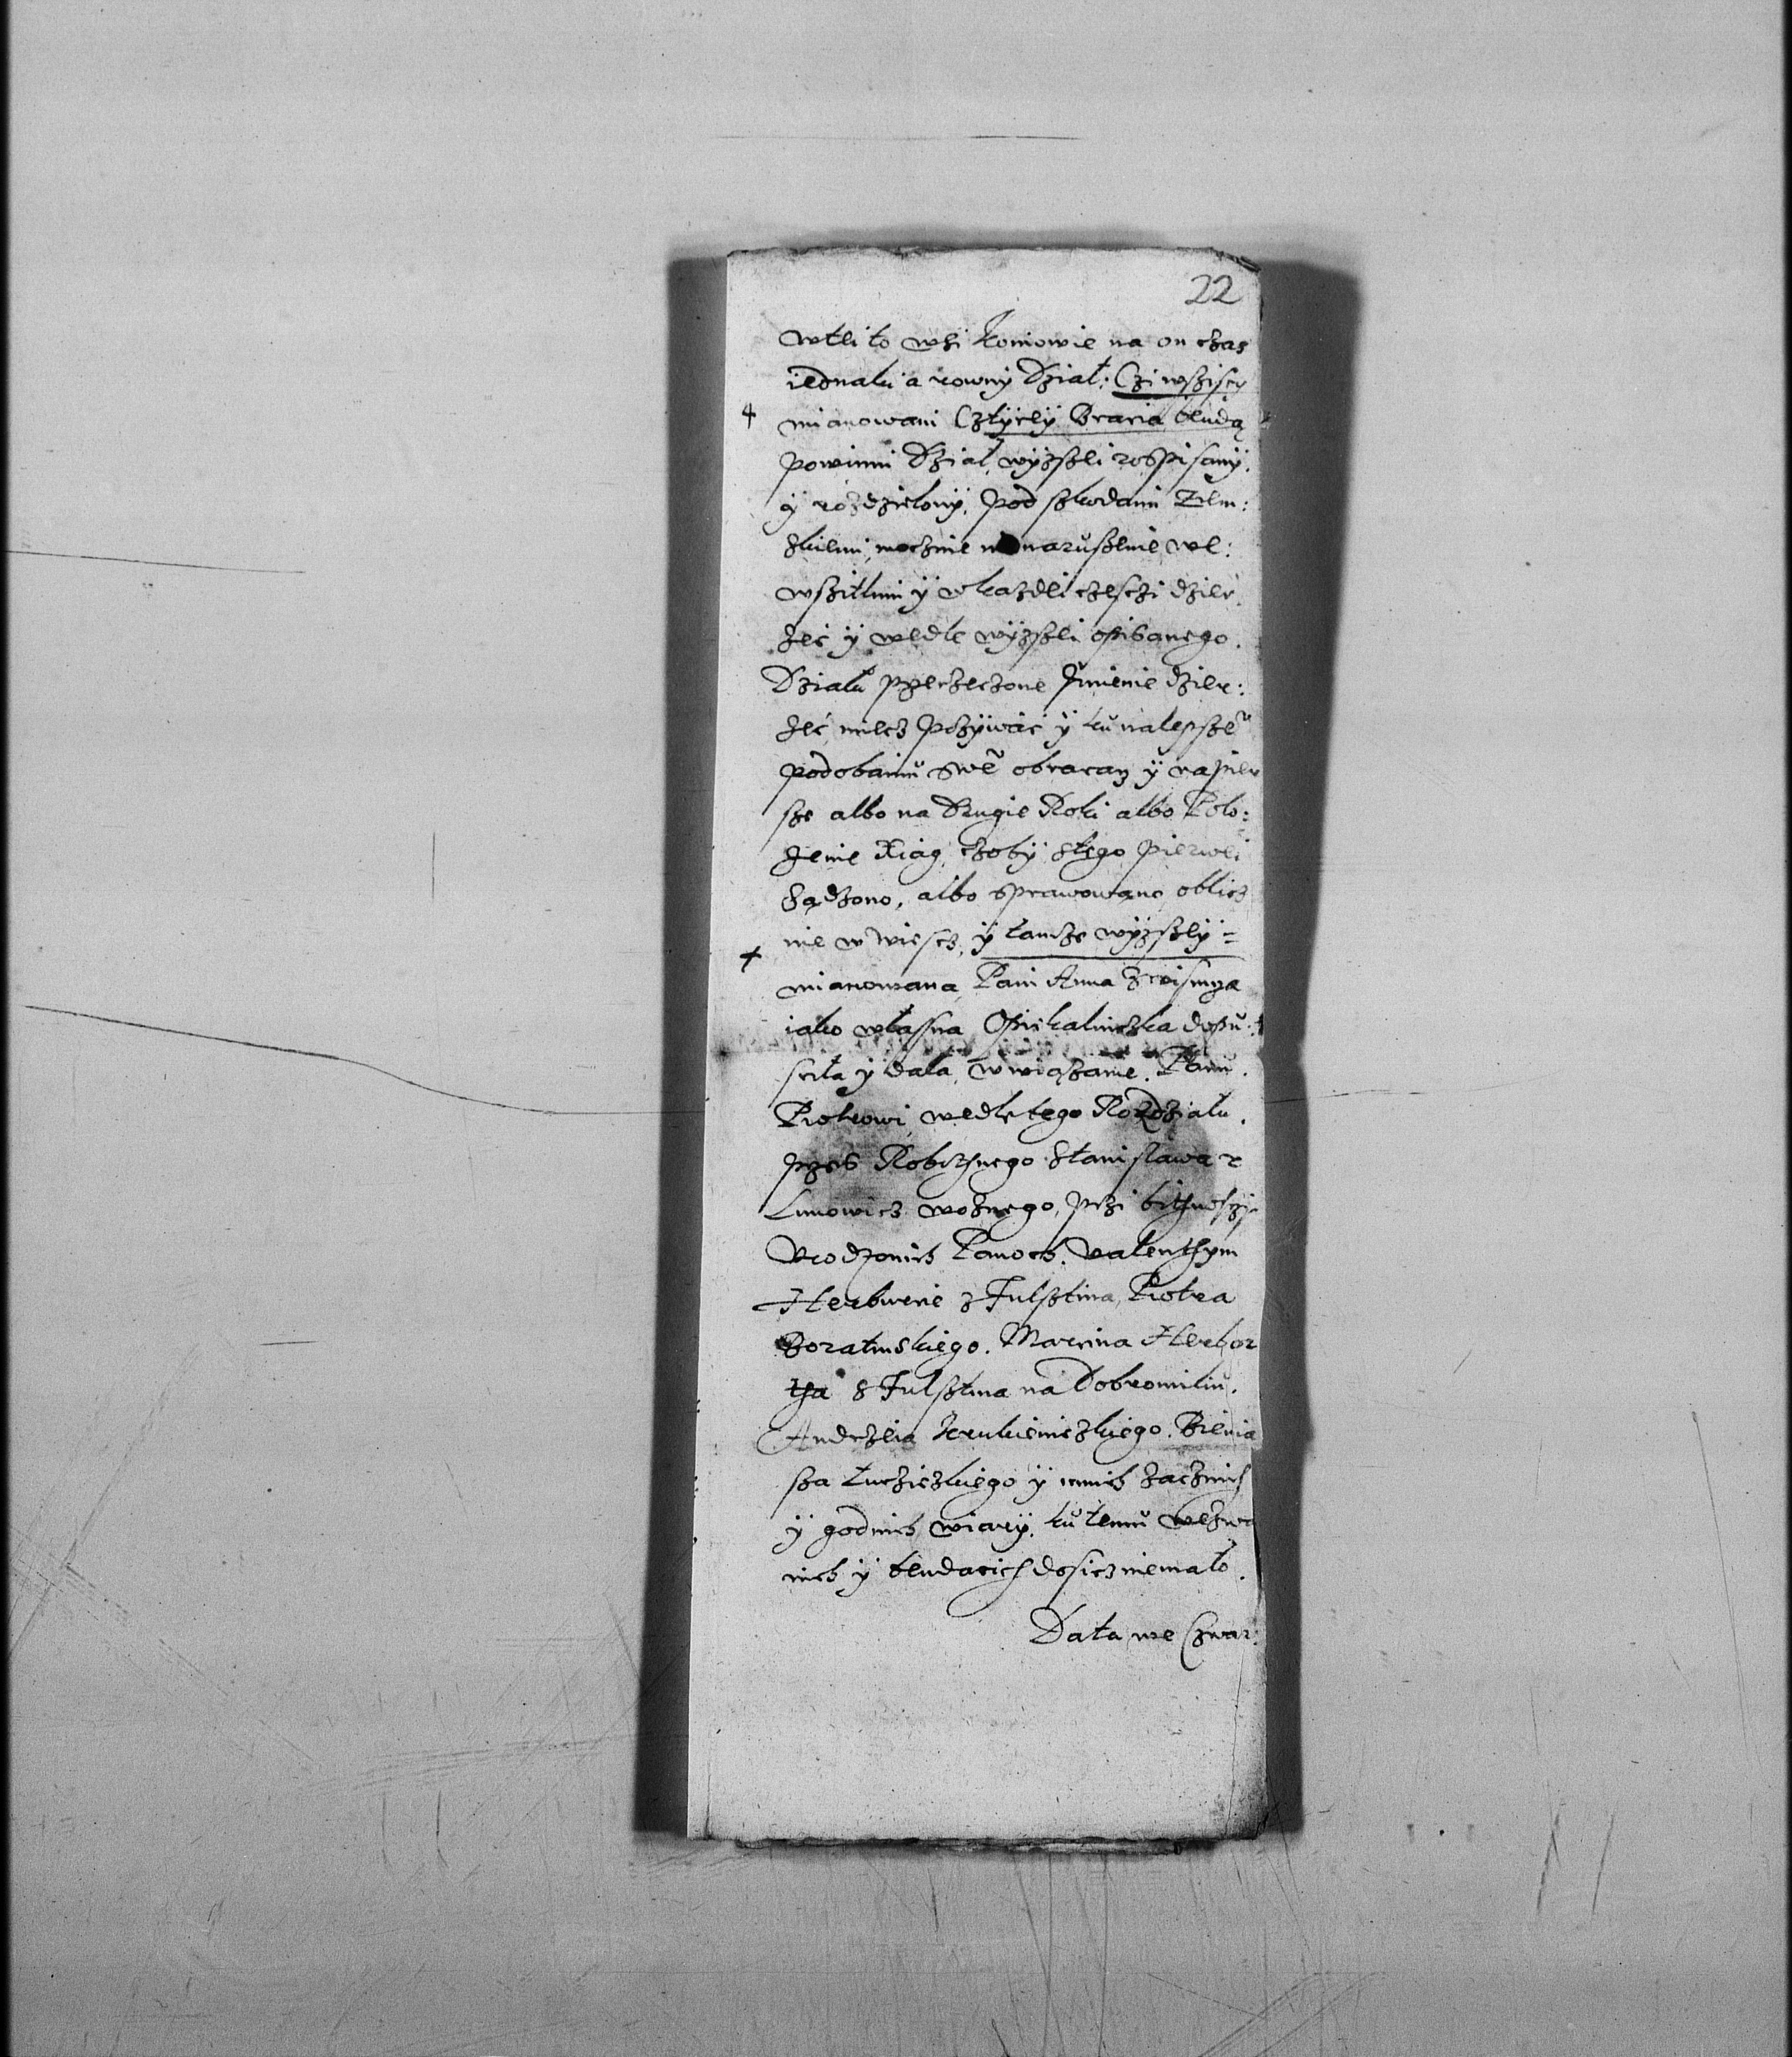 22
wtei to wsi koniowie na on czas
iednaki a rowny Dział: Czi wszisczy
mianowani Cztyrey Bracia będą
powinni Dział wyższei rospisany
y rozdzielony, pod szkodami Ziem:
skiemi, mocznie nienaruszenie we:
wszitkim y w kazdei cześczi dzier
zec y wedle wyższei opisanego
Działu przerzeczone Jmienie dzier:
zec, miecz, pożywac y ku nalepszeu
podobaniu sweu obracacz y napier
sze albo na Drugie Roki albo Poło:
żenie Xiąg, czoby stego pierwei
Sądzono, albo sprawowano oblicz
nie w wiescz, y tamże wyższey =
mianowana Pani Anna
iako własna Opiekalniczka dopu:
sciła y dała, wwiązanie, Panu
Piotrowi wedle tego Rozdziału,
przes Robothnego Stanisława z
Lunowicz woznego, przi bithnosczi
Urodzonich Panoch, Valenthym
Herburcie z Fulsztina, Piotra
Boratinskiego, Marcina Herbor
tha s Fulsztina na Dobromiliu,
Andrzeia Krukieniczkiego, Bienia
sza Łuczieczkiego y innich zacznich
y godnich wiary, ku temu wezwa
nich y będacich dosicz niemało.
Data we Czwar: